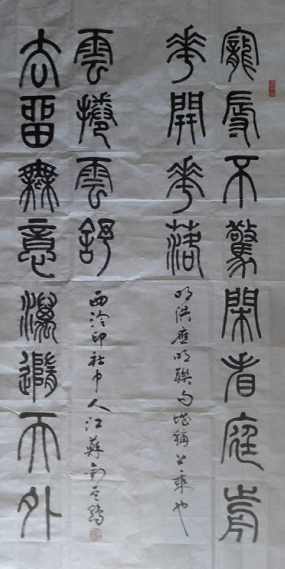 寵辱不驚閒看庭前
花開花落
去留無意漫隨天外
雲捲雲舒
明洪應明聯句堪稱上乘也
西泠印社中人江蘇鶴